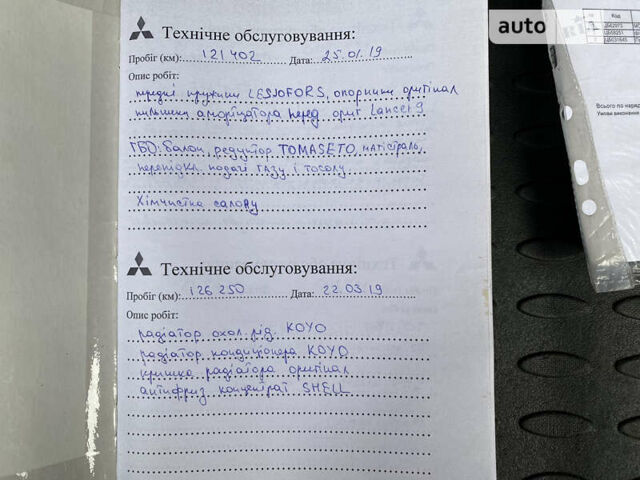 auto
RIA
Код
ЦБ02973
ЦБ58251
ЦБ031645
Всього по наряд
Умови виконання
Технічне обслуговування:
Пробіг (км): 121 402 Дата: 25.01.19
Опис робіт:
передні пружини LESJOFORS, опорники оригінал
пильники амортизатора перед ориг Lancer 9
ГБО: балон, редуктор TOMASETO, магістраль,
перехідк. подачі газу і тосолу
Хімчистка салону
Технічне обслуговування:
Пробіг (км): 126 250 Дата: 22.03.19
Опис робіт:
радіатор охол. рід. KOYO
радіатор кондиціонера KOYO
кришка радіатора оригінал
антифриз концентрат SHELL